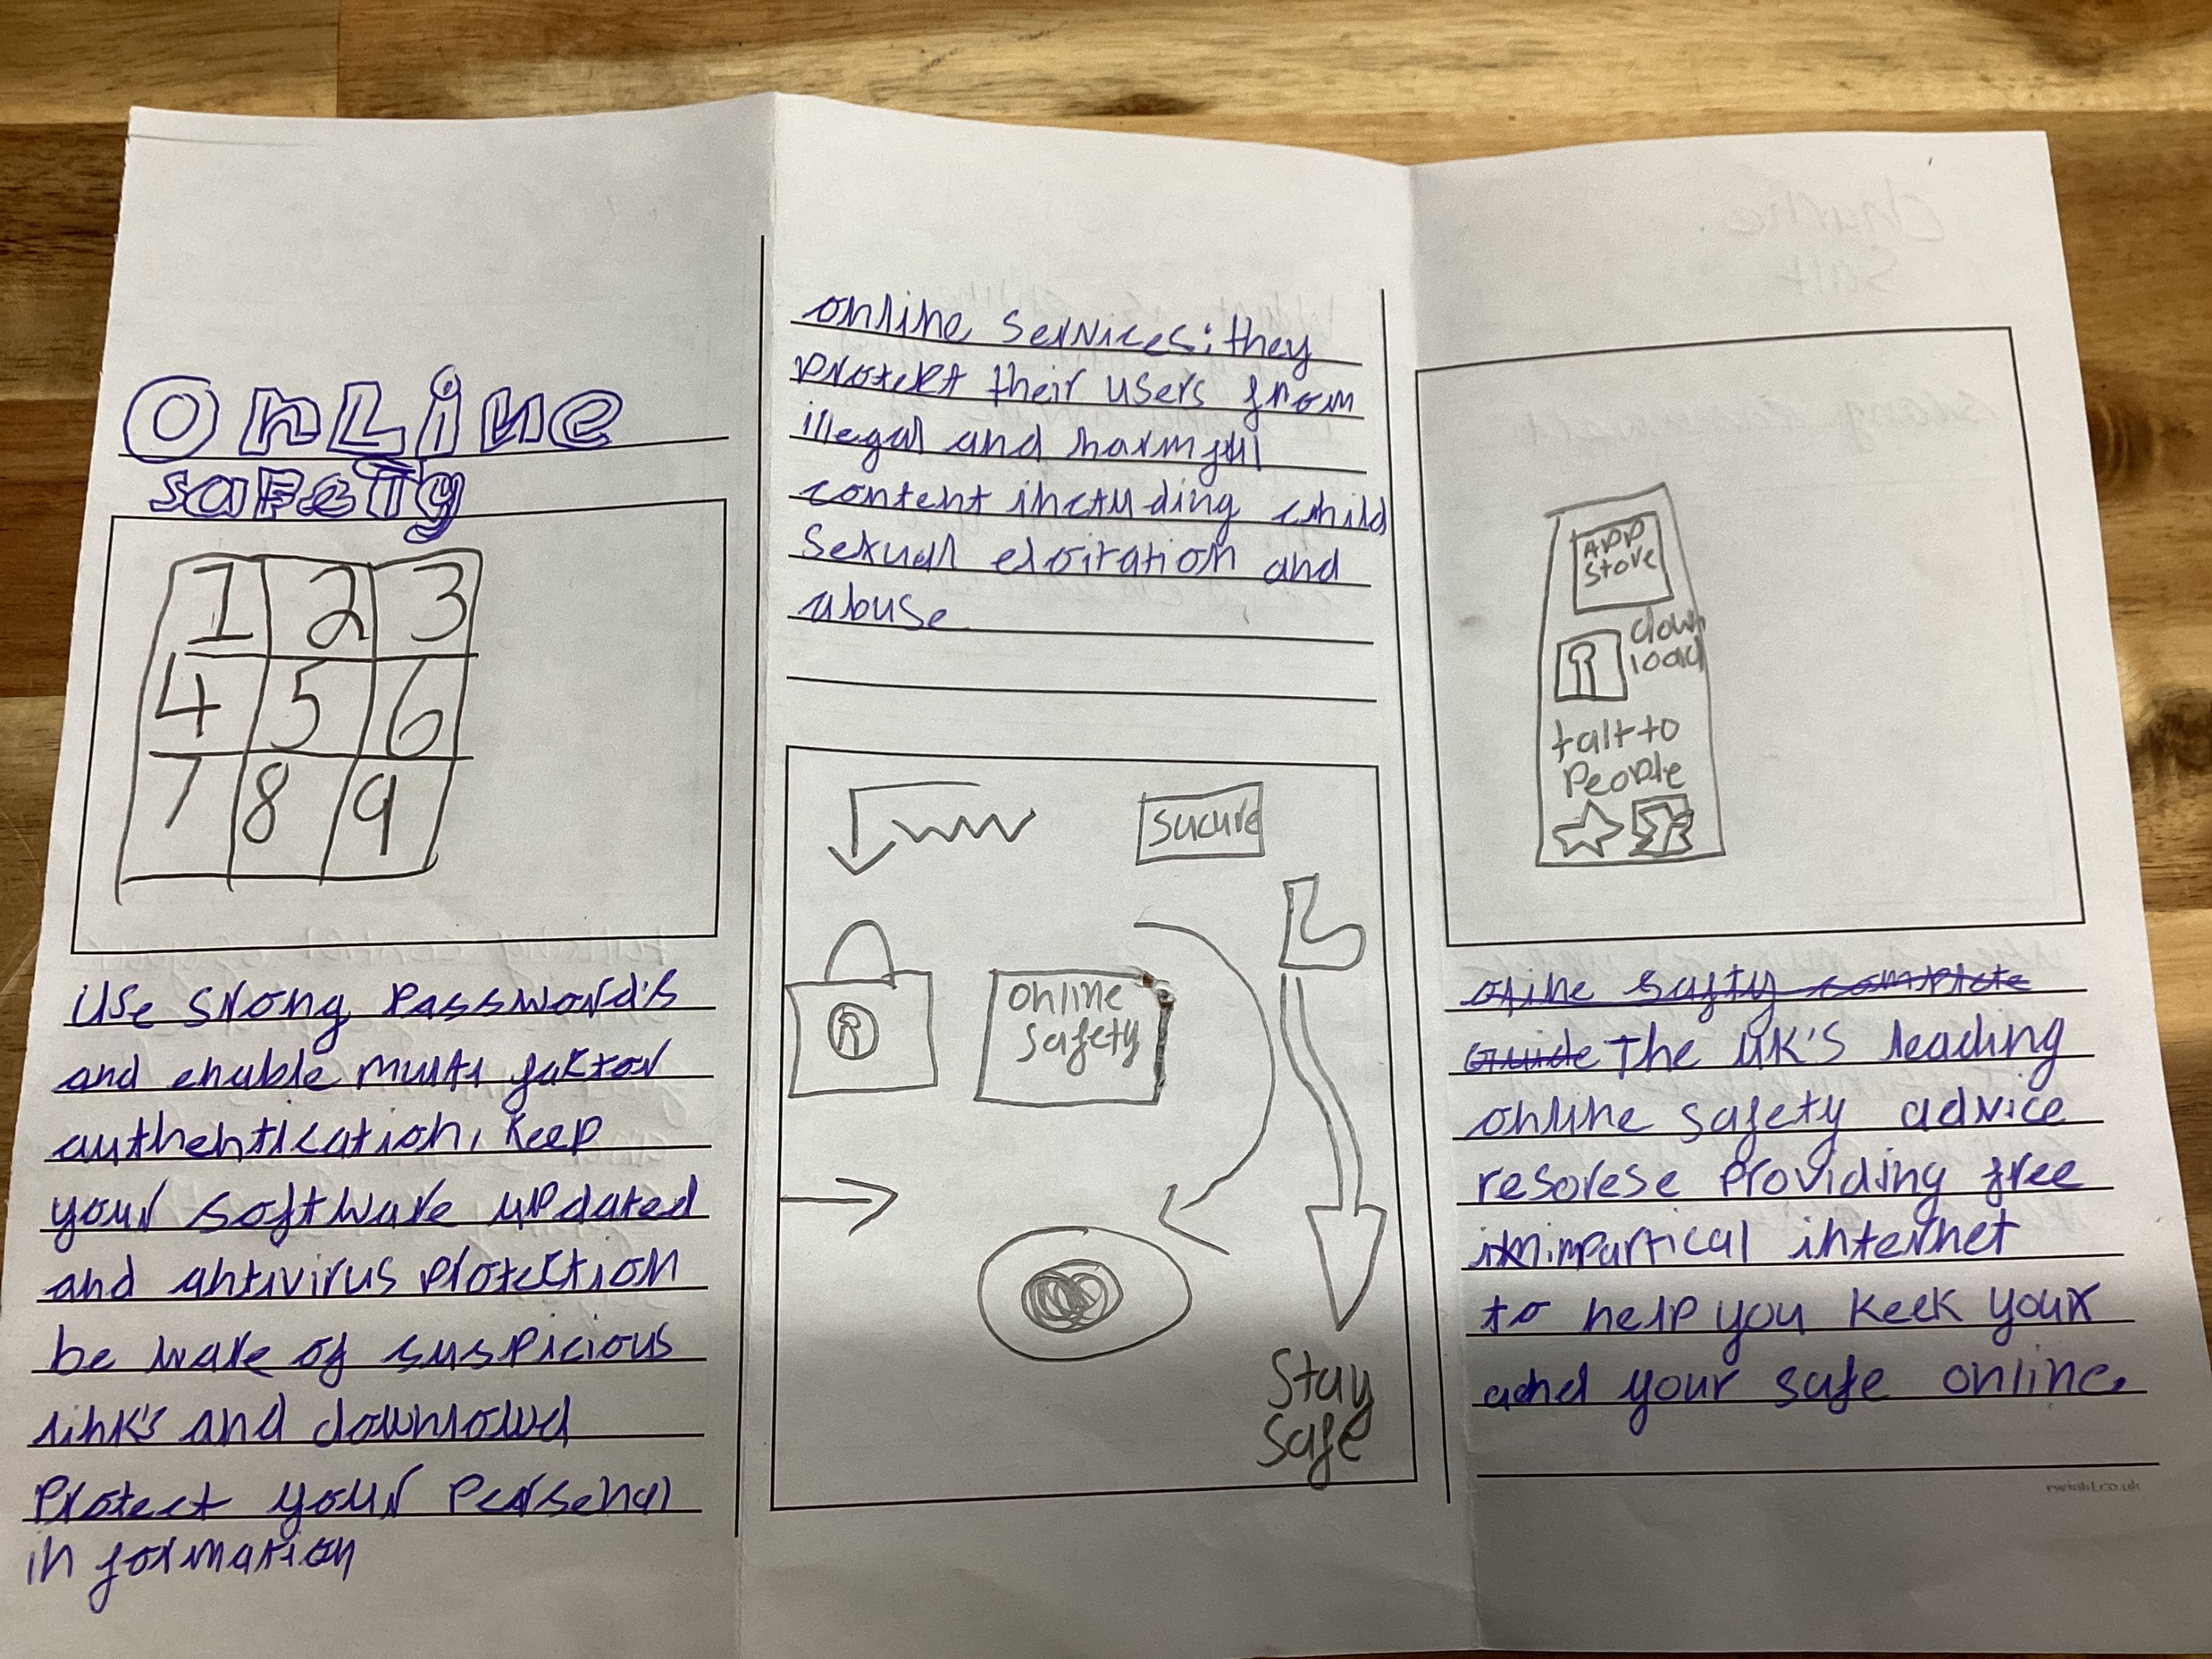 OnLine
saFeTy
1 2 3
4 5 6
7 8 9
Use srong Password's
and enable multi faktor
authentication, Keep
your software updated
and antivirus protection
be ware of suspicious
link's and downlowd
Protect your Persenal
in formation
online services: they
protekt their users from
illegal and harmful
content including child
sexual eloitation and
abuse
sucure
R
online
safety
Stay
safe
APP
Store
down
load
talk to
People
ofine safty complete
Guide The UK'S leading
online safety advice
resorese Providing free
impartical internet
to help you Keek your
and your safe online.
twinkl.co.uk